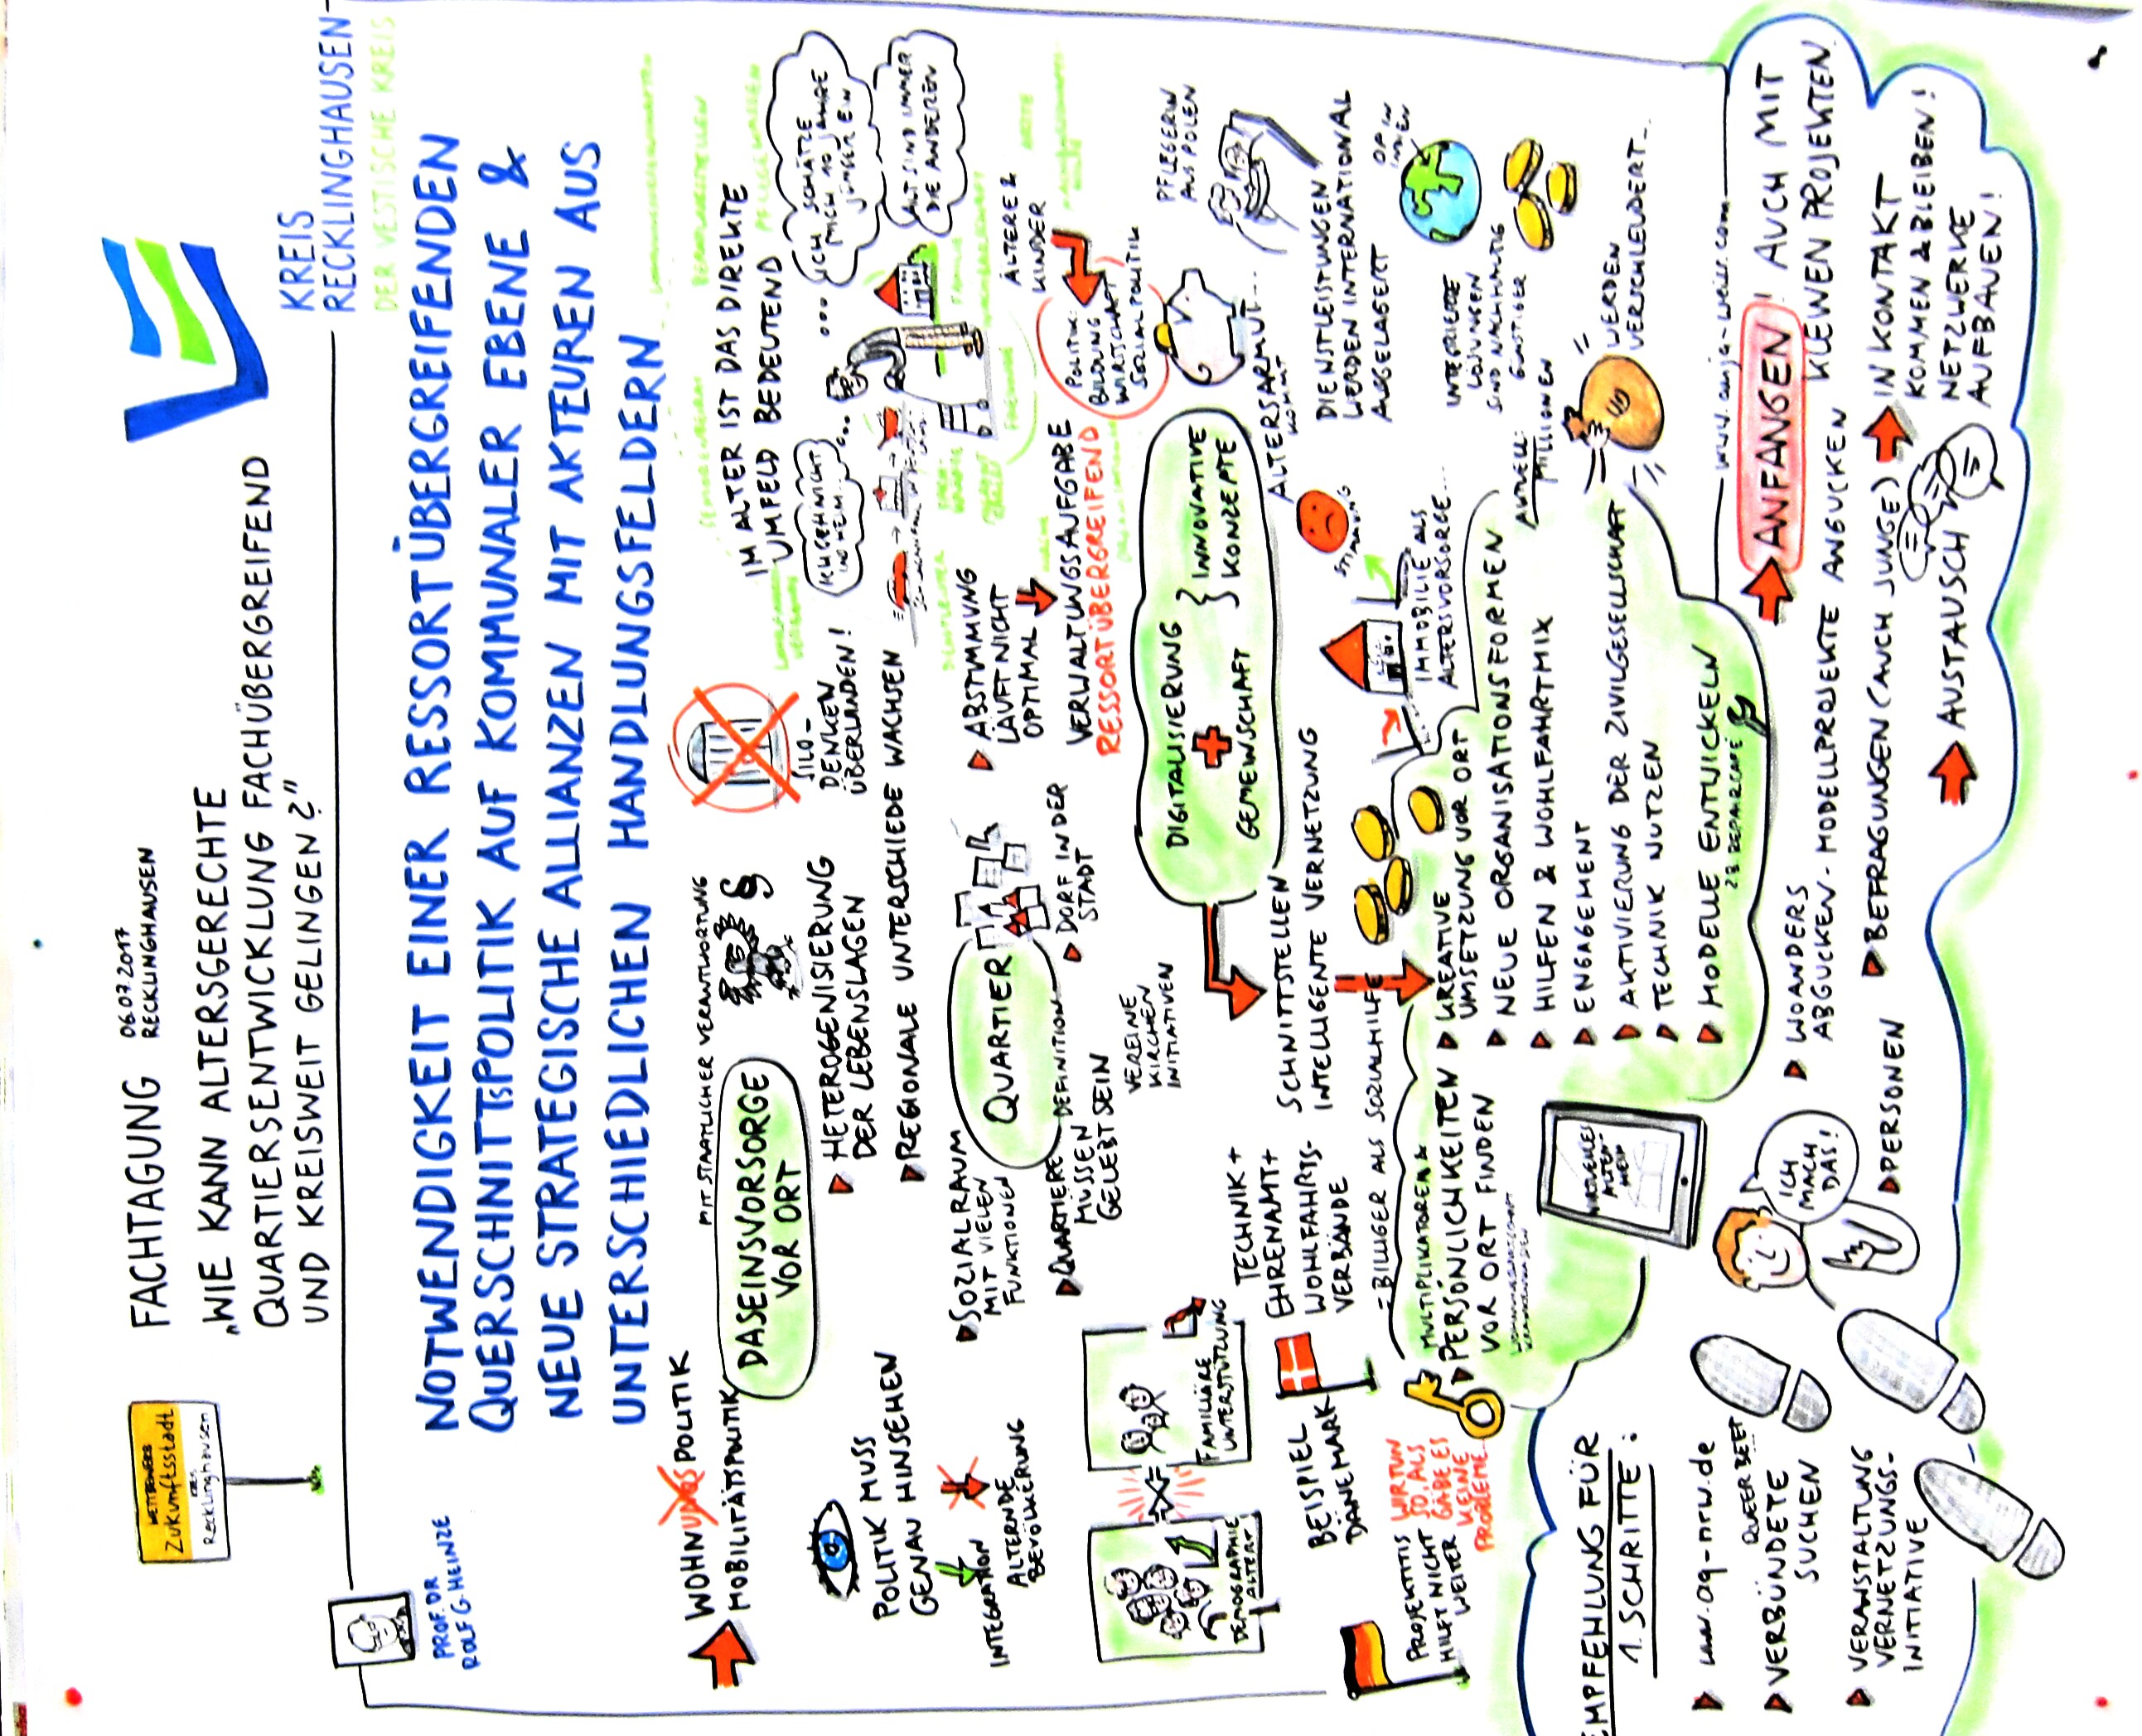 FACHTAGUNG 06.07.2017
RECKLINGHAUSEN
„WIE KANN ALTERSGERECHTE
QUARTIERSENTWICKLUNG FACHÜBERGREIFEND
UND KREISWEIT GELINGEN?"
WETTBEWERB
Zukunftsstadt
KREIS
Recklinghausen
KREIS
RECKLINGHAUSEN
DER VESTISCHE KREIS
PROF. DR
ROLF G. HEINZE
NOTWENDIGKEIT EINER RESSORTÜBERGREIFENDEN
QUERSCHNITTSPOLITIK AUF KOMMUNALER EBENE &
NEUE STRATEGISCHE ALLIANZEN MIT AKTEUREN AUS
UNTERSCHIEDLICHEN HANDLUNGSFELDERN
WOHNUNGSPOLITIK
MOBILITÄTSPOLITIK
MIT STAATLICHER VERANTWORTUNG
DASEINSVORSORGE
VOR ORT
HETEROGENISIERUNG
DER LEBENSLAGEN
REGIONALE UNTERSCHIEDE WACHSEN
SILO-
DENKEN
ÜBERLANDEN!
IM ALTER IST DAS DIREKTE
UMFELD BEDEUTEND
ICH SCHÄTZE
MICH 10 JAHRE
JÜNGER EIN
ALT SIND IMMER
DIE ANDEREN
ICH GEH NICHT
INS HEIM...
POLITIK MUSS
GENAU HINSEHEN
INTEGRATION
ALTERNDE
BEVÖLKERUNG
SOZIALRAUM
MIT VIELEN
FUNKTIONEN
QUARTIER
DEFINITION
QUARTIERE
MÜSSEN
GELEBT SEIN
DORF IN DER
STADT
VEREINE
KIRCHEN
INITIATIVEN
ABSTIMMUNG
LÄUFT NICHT
OPTIMAL
VERWALTUNGSAUFGABE
RESSORTÜBERGREIFEND
ÄLTERE &
KINDER
POLITIK:
BILDUNG
WIRTSCHAFT
SOZIALPOLITIK
DEMOGRAPHIE
ALTERT
FAMILIÄRE
UNTERSTÜTZUNG
DIGITALISIERUNG
+
GEMEINSCHAFT
INNOVATIVE
KONZEPTE
SCHNITTSTELLEN
INTELLIGENTE VERNETZUNG
ALTERSARMUT...
KOMMT
PFLEGERIN
AUS POLEN
DIENSTLEISTUNGEN
WERDEN INTERNATIONAL
AUSGELAGERT
BEISPIEL
DÄNEMARK
TECHNIK +
EHRENAMT +
WOHLFAHRTS-
VERBÄNDE
= BILLIGER ALS SOZIALHILFE
STIMMUNG
IMMOBILIE ALS
ALTERSVORSORGE...
LÖSUNGEN
SIND NACHHALTIG
GÜNSTIGER
AKTUELL:
MILLIONEN
WERDEN
VERSCHLEUDERT...
PROJEKTITIS
HILFT NICHT
WEITER
WIR TUN
SO, ALS
GÄBE ES
KEINE
PROBLEME
MULTIPLIKATOREN &
PERSÖNLICHKEITEN
VOR ORT FINDEN
KREATIVE
UMSETZUNG VOR ORT
NEUE ORGANISATIONSFORMEN
HILFEN & WOHLFAHRTMIX
ENGAGEMENT
AKTIVIERUNG DER ZIVILGESELLSCHAFT
TECHNIK NUTZEN
MODELLE ENTWICKELN
ZB REPAIRCAFE
VIRTUELLES
ALTEN-
HEIM
www.anja-weiss.com
EMPFEHLUNG FÜR
1. SCHRITTE:
www.aq-nrw.de
QUEERBEET
VERBÜNDETE
SUCHEN
VERANSTALTUNG
VERNETZUNGS-
INITIATIVE
ICH
MACH
DAS!
PERSONEN
WOANDERS
ABGUCKEN - MODELLPROJEKTE ANGUCKEN
BEFRAGUNGEN (AUCH JUNGE)
AUSTAUSCH
ANFANGEN! AUCH MIT
KLEINEN PROJEKTEN
IN KONTAKT
KOMMEN & BLEIBEN!
NETZWERKE
AUFBAUEN!